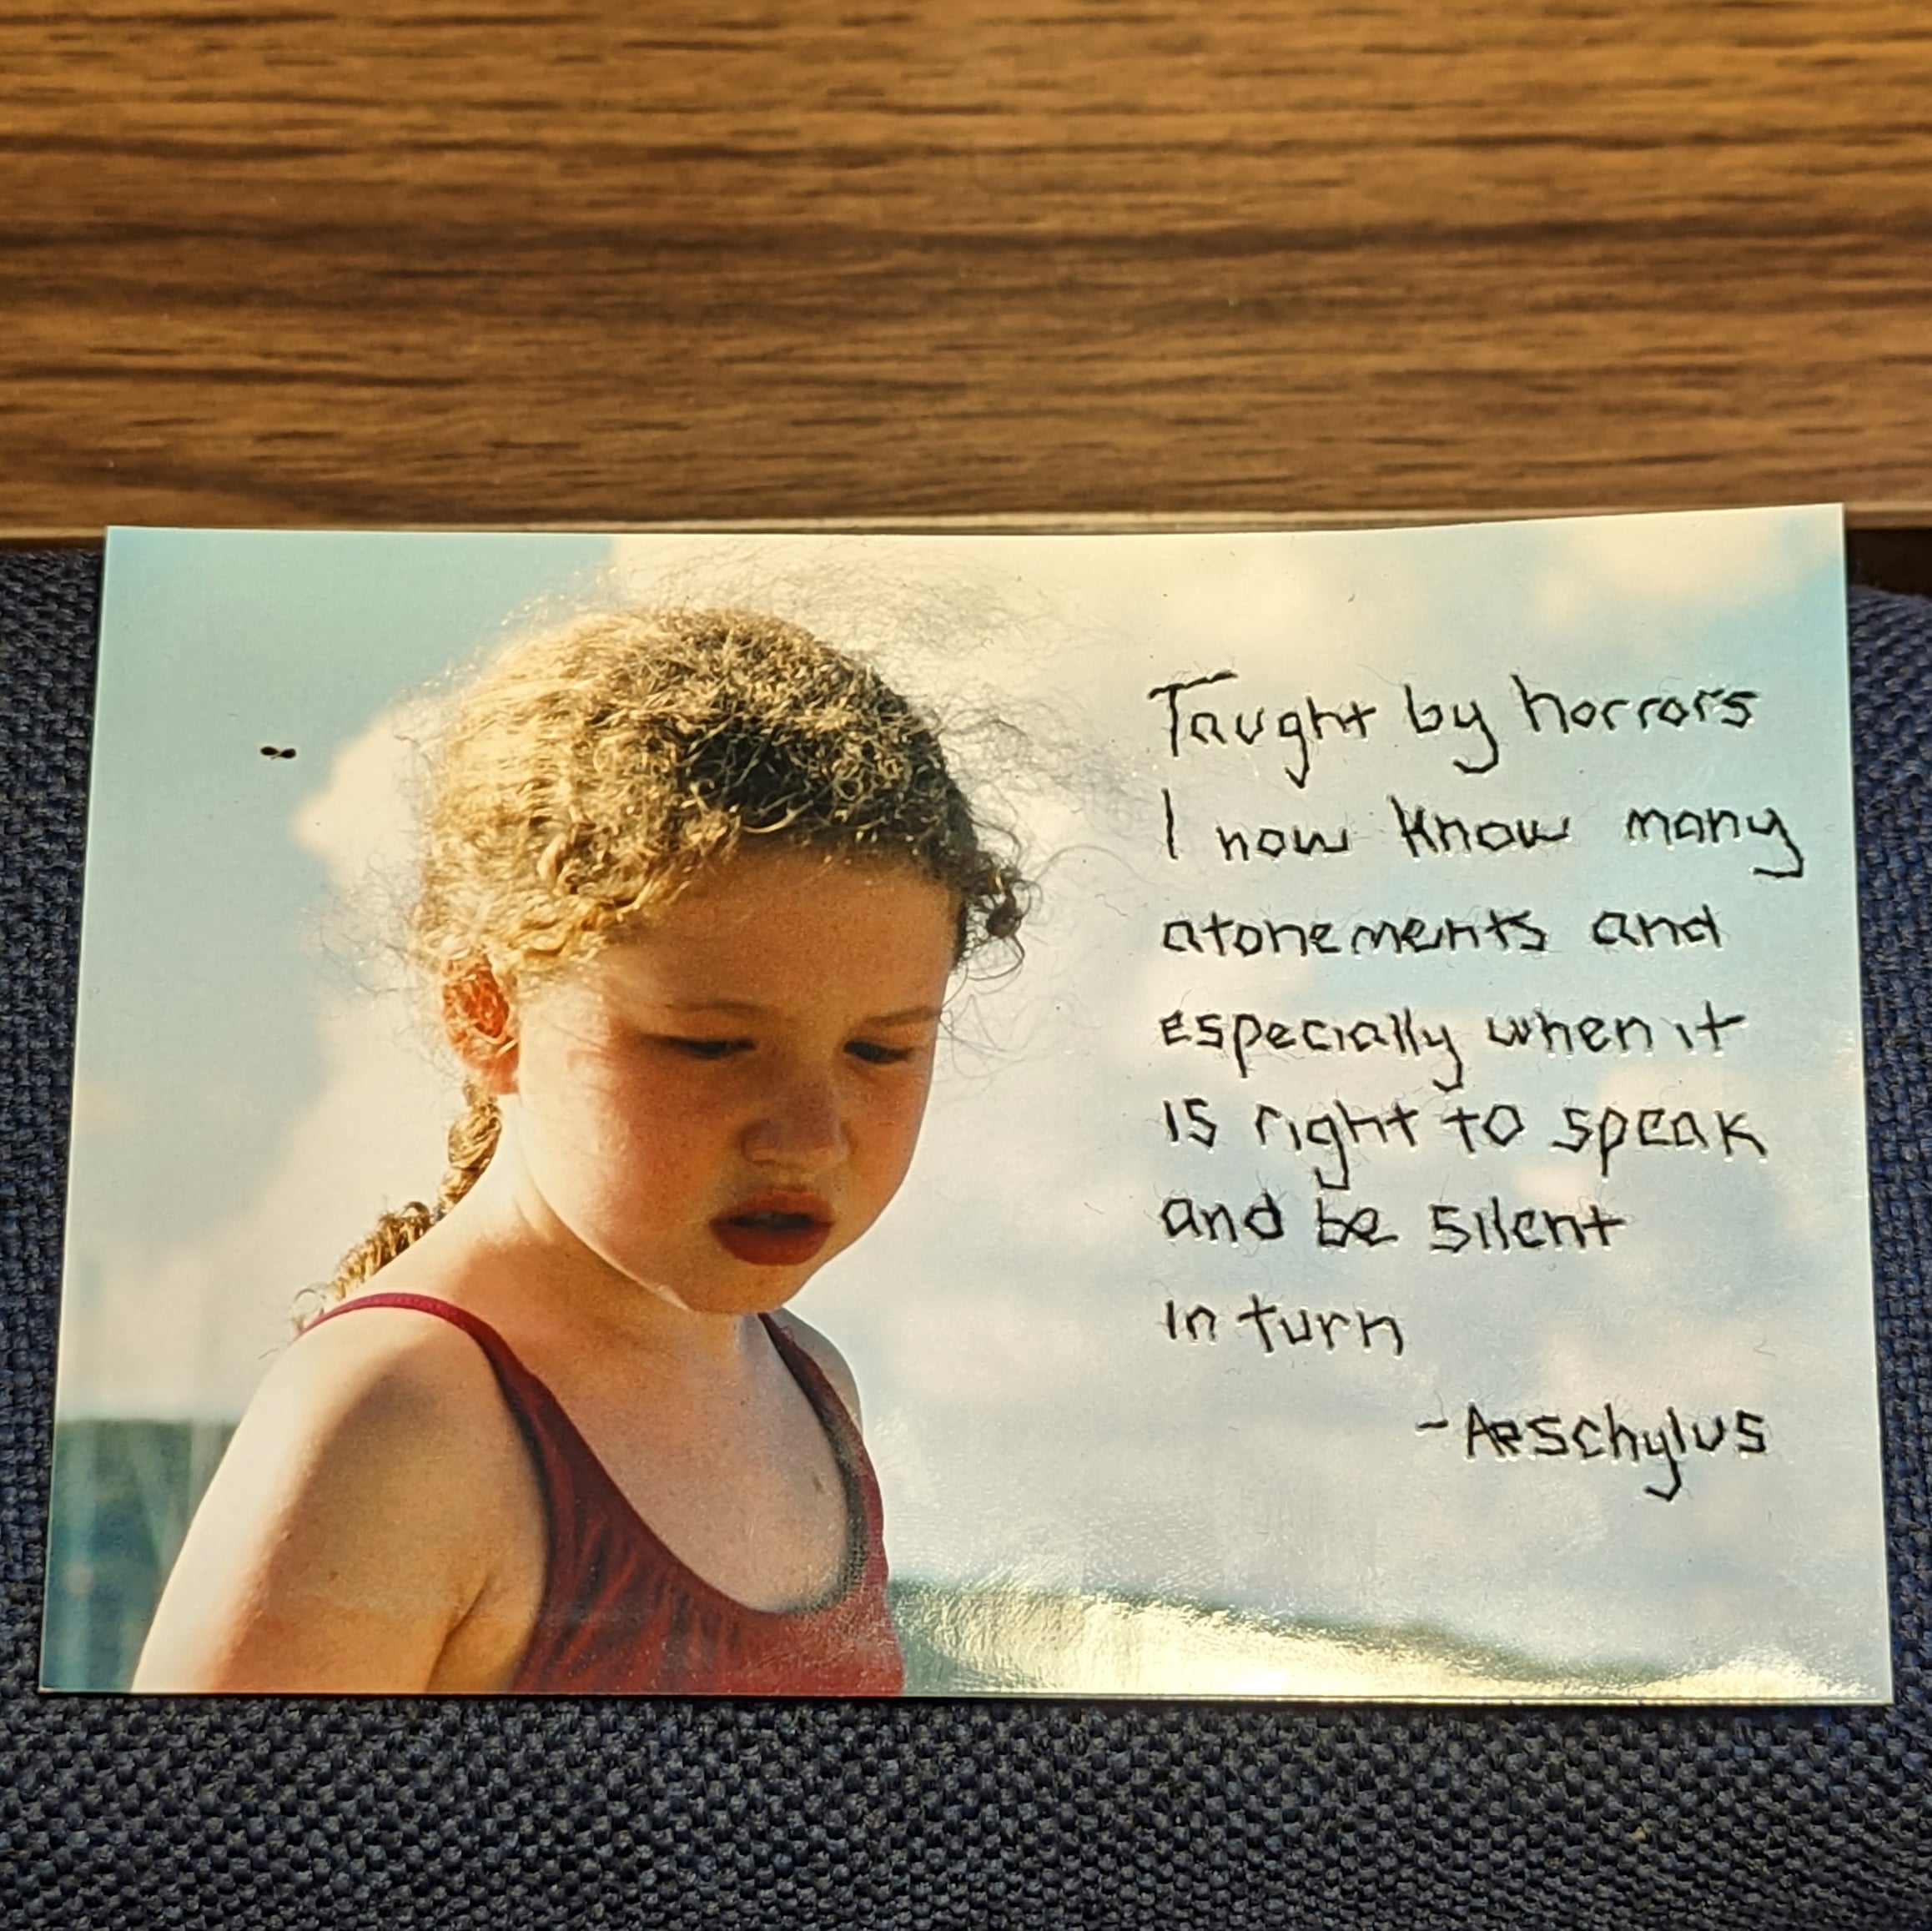 Taught by horrors
I now know many
atonements and
especially when it
is right to speak
and be silent
in turn
-Aeschylus